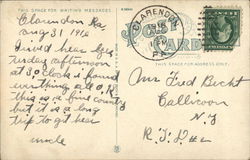 THIS SPACE FOR WRITING MESSAGES
Clarendon Pa
Aug 31 1910
Arived hear
Tusday afternoon
at 3 O Clock & found
everthing all O.K.
this is a fine country
but it is a long
trip to get hear
uncle
CLARENDON
PA.
POST
CARD
THIS SPACE FOR ADDRESS ONLY
Mr Fred Becht
Callicoon
N.Y.